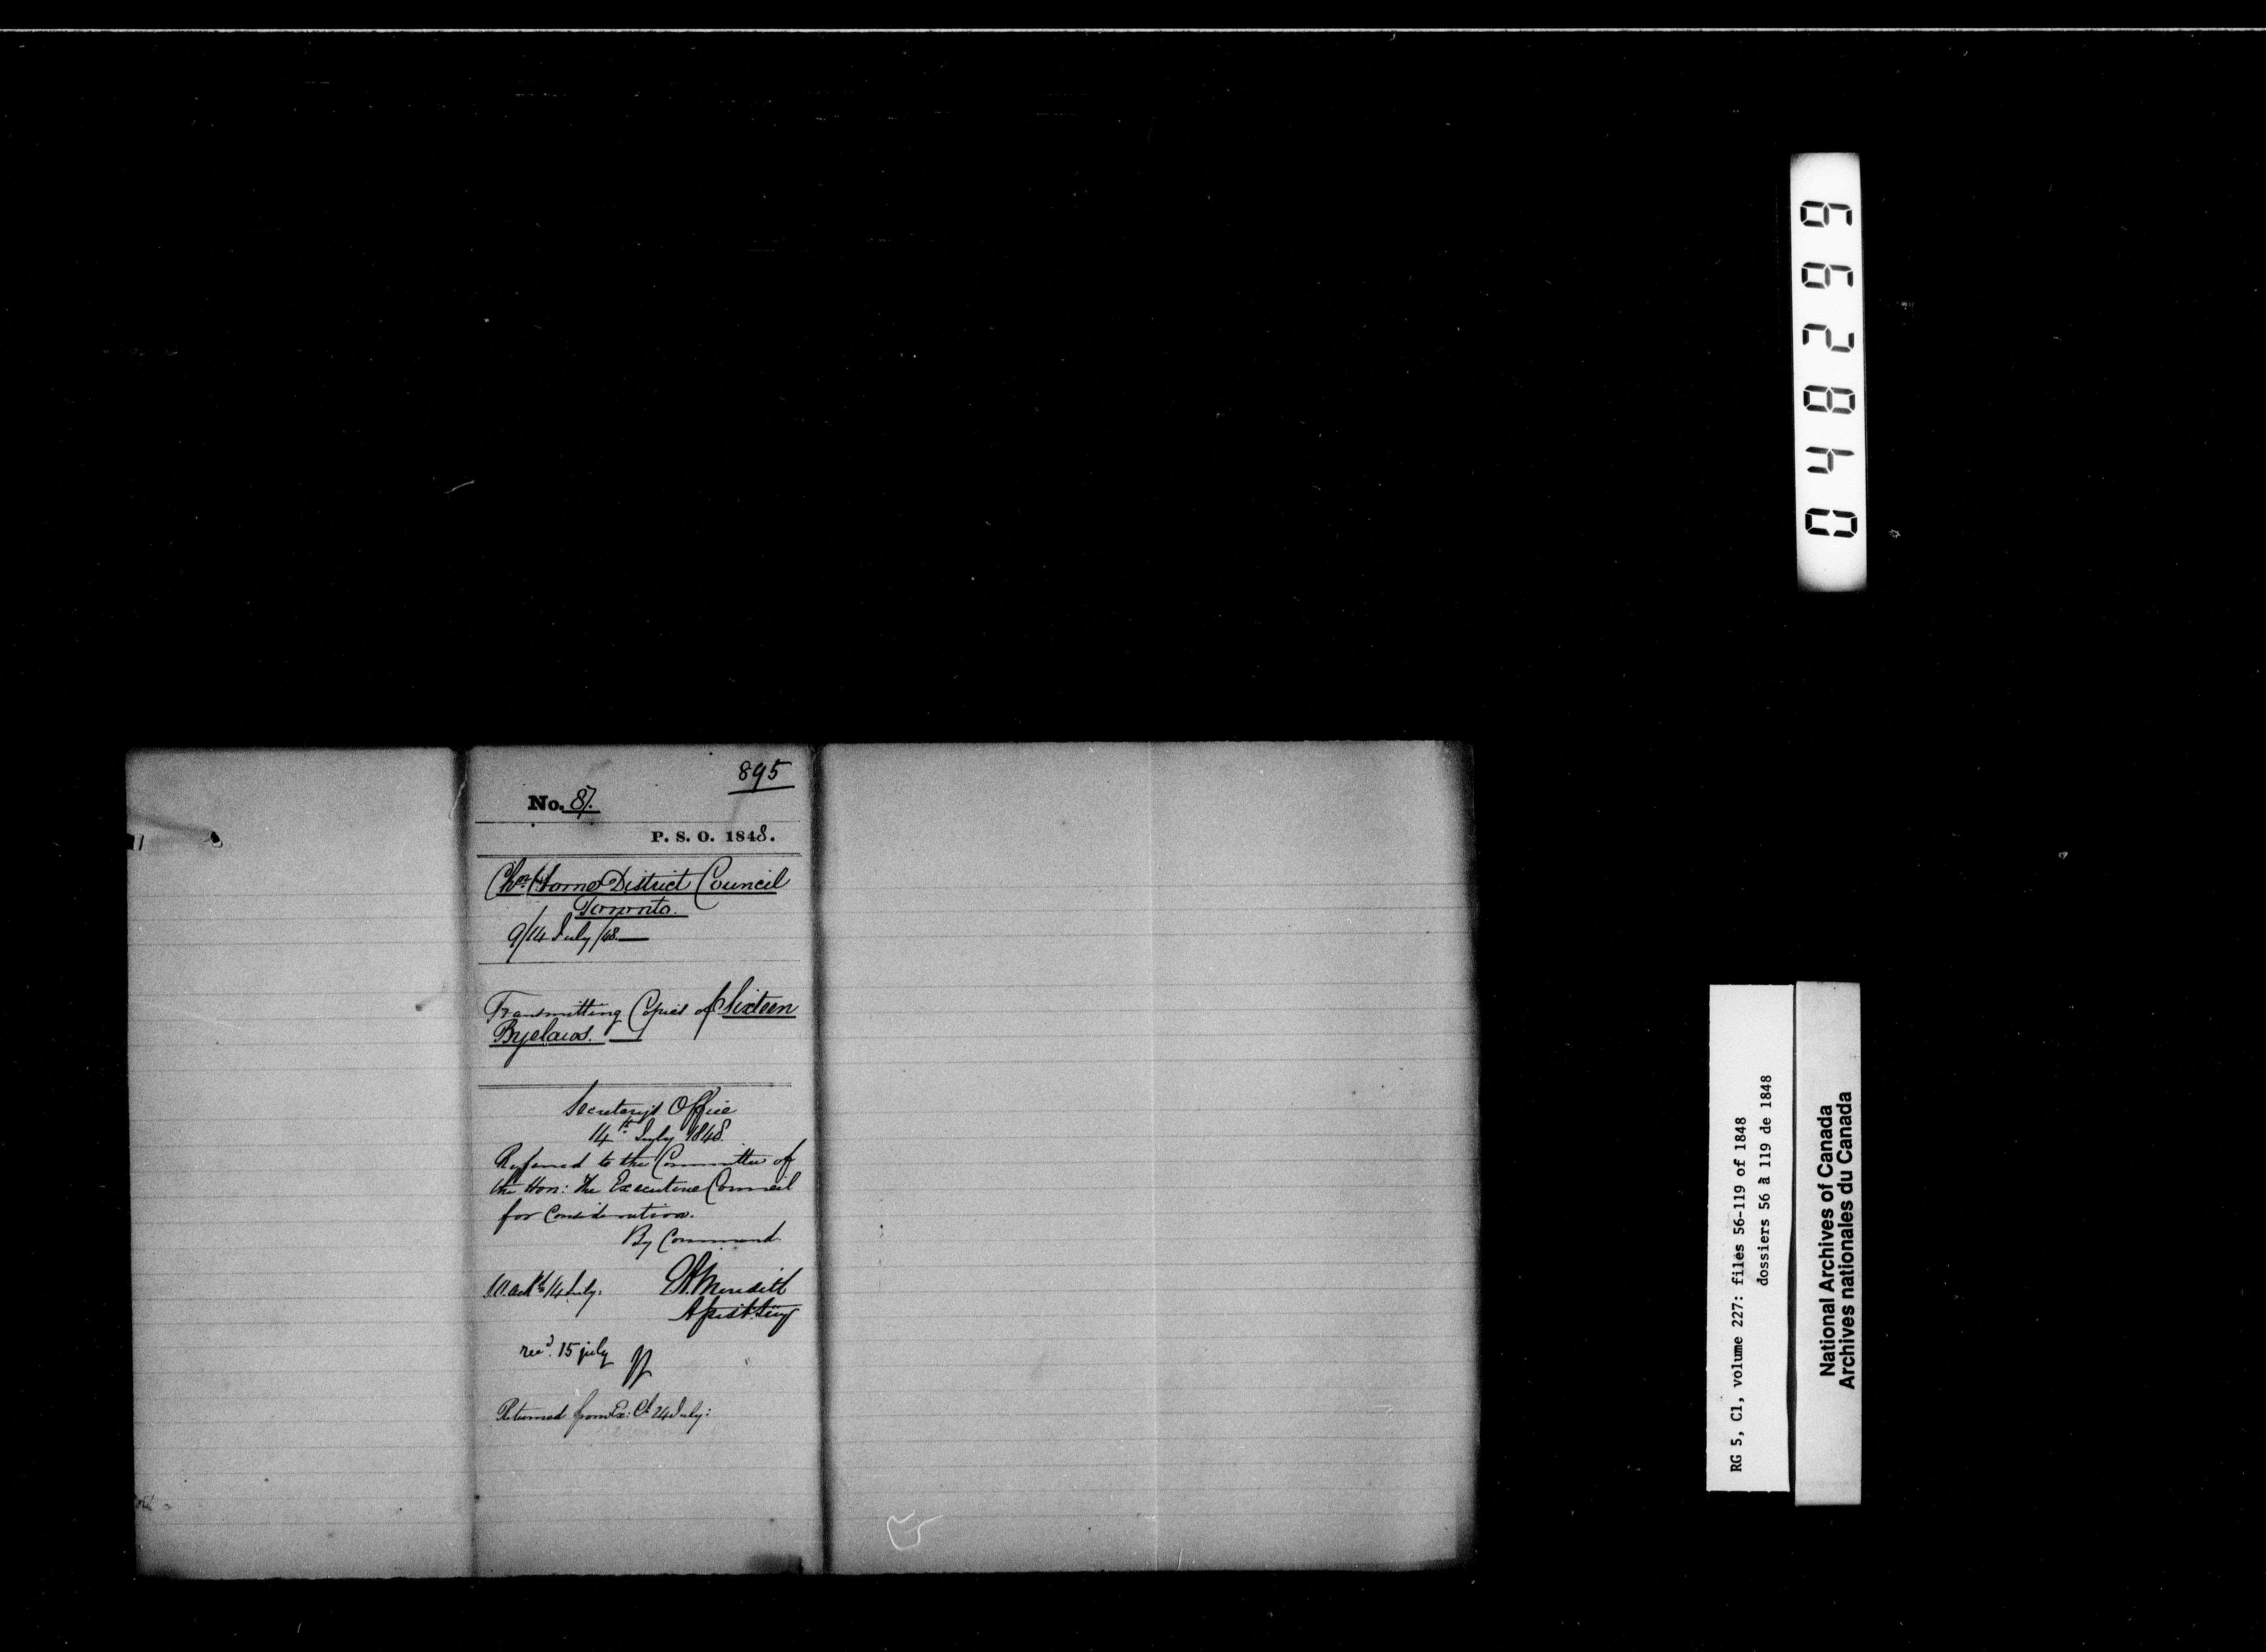 895
No. 87.
P. S. O. 1848.
Chn. Home District Council
Toronto.
9/14 July /48.—
Transmitting Copies of Sixteen
Byelaws. —
Secretary's Office
14th July 1848.
Referred to the Committee of
the Hon: The Executive Council
for Consideration.
By Command
Ackd 14 July.
E A Meredith
Assist. Secy
recd. 15 july
Returned from Ex: Cl 24 July:
048299
RG 5, C1, volume 227: files 56-119 of 1848
dossiers 56 à 119 de 1848
National Archives of Canada
Archives nationales du Canada